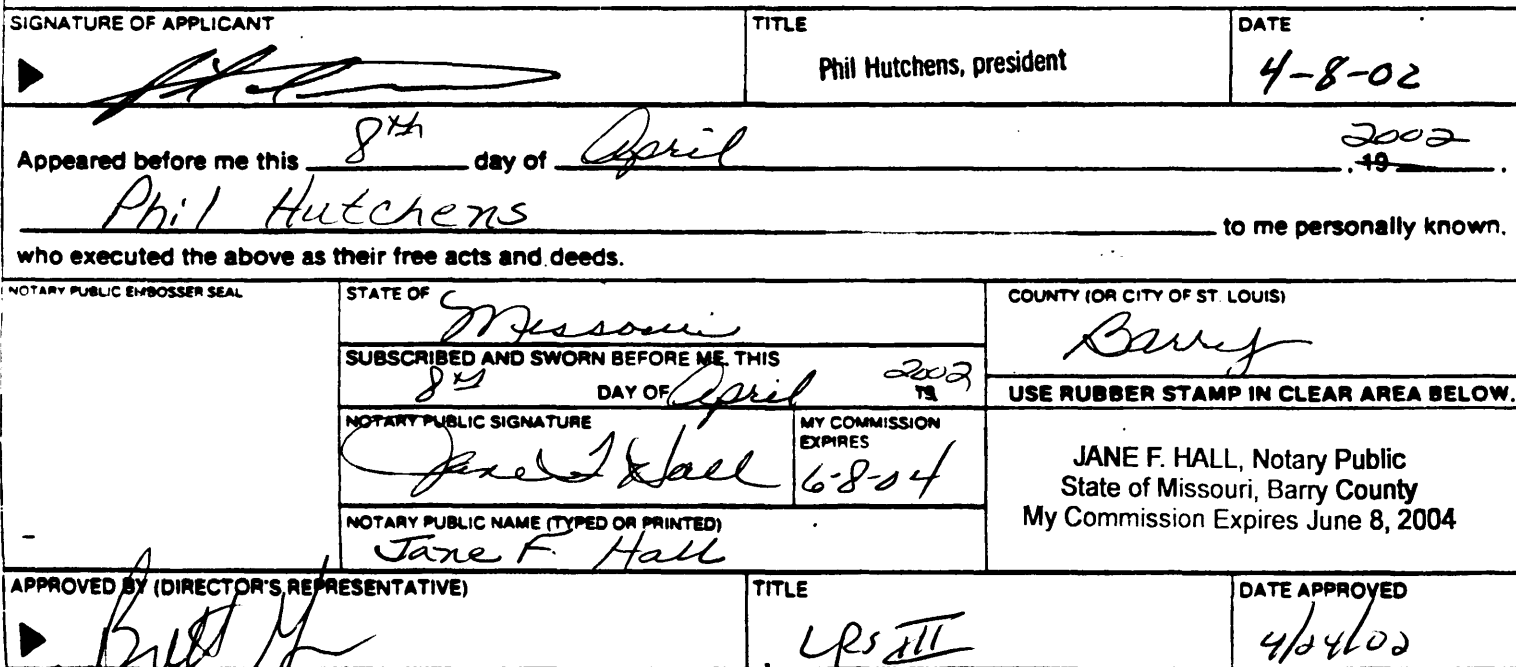 SIGNATURE OF APPLICANT TITLE DATE
Phil Hutchens, president 4-8-02
Appeared before me this 8th day of April 2002 , 19 .
Phil Hutchens to me personally known,
who executed the above as their free acts and deeds.
NOTARY PUBLIC EMBOSSER SEAL STATE OF Missouri COUNTY (OR CITY OF ST. LOUIS) Barry
SUBSCRIBED AND SWORN BEFORE ME, THIS
8th DAY OF April 2002 19 USE RUBBER STAMP IN CLEAR AREA BELOW.
NOTARY PUBLIC SIGNATURE MY COMMISSION
EXPIRES
Jane F Hall 6-8-04
JANE F. HALL, Notary Public
State of Missouri, Barry County
My Commission Expires June 8, 2004
NOTARY PUBLIC NAME (TYPED OR PRINTED)
Jane F. Hall
APPROVED BY (DIRECTOR'S REPRESENTATIVE) TITLE DATE APPROVED
LRS III 4/24/02